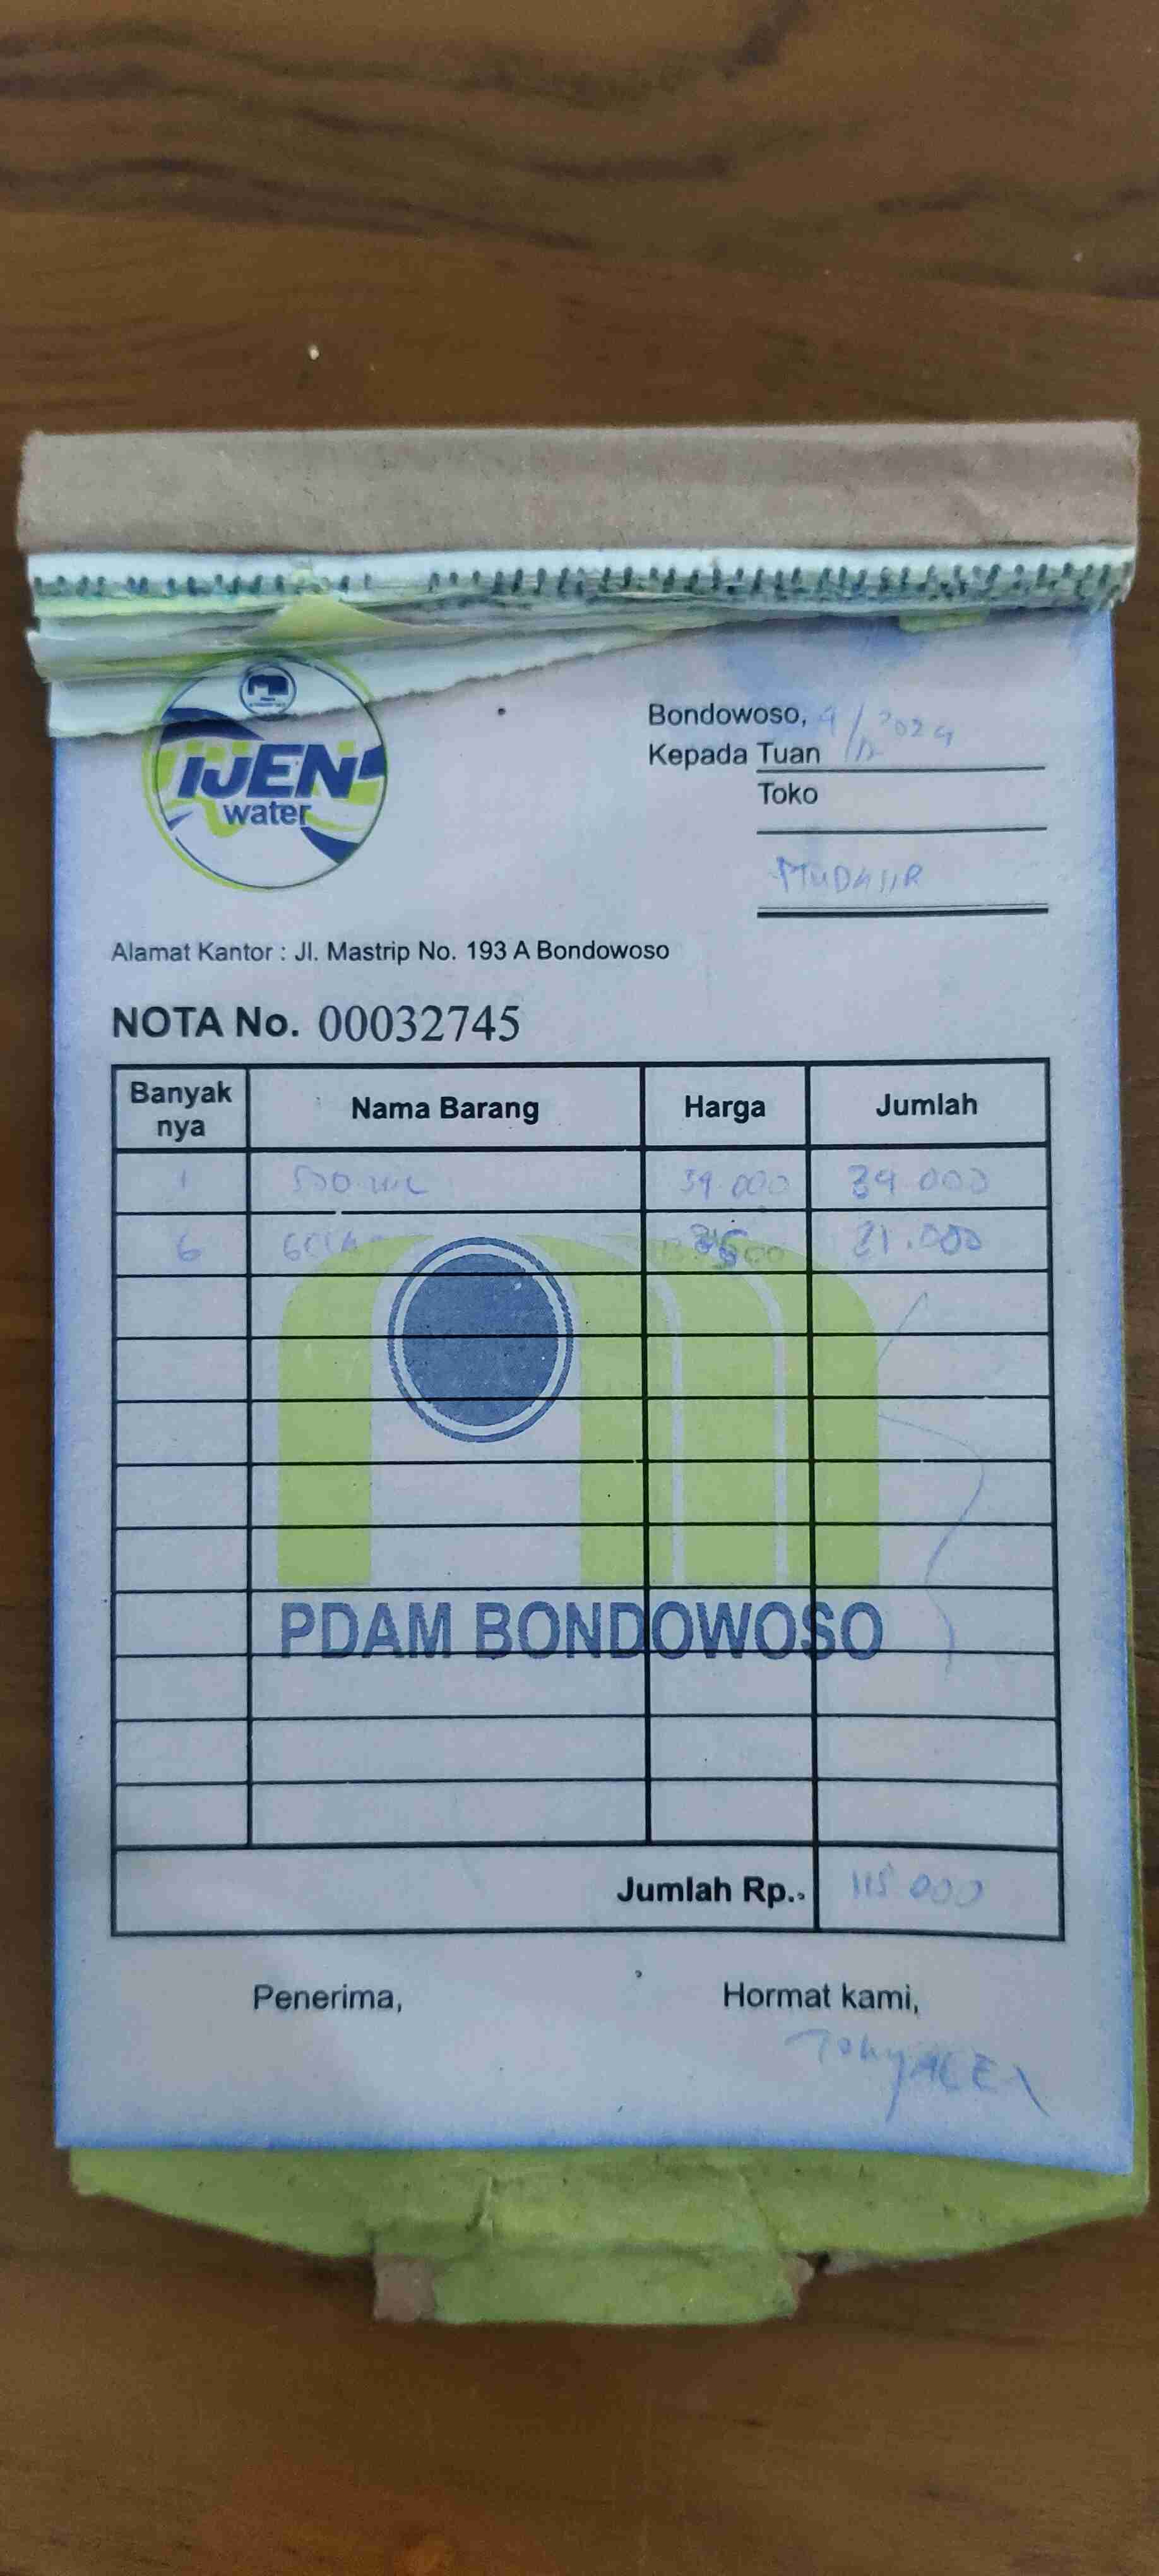 IJEN
water
Bondowoso, 9/12 2024
Kepada Tuan
Toko
MUDASIR
Alamat Kantor : Jl. Mastrip No. 193 A Bondowoso
NOTA No. 00032745
Banyak nya Nama Barang Harga Jumlah
1 500 ml 34.000 34.000
6 81.000
PDAM BONDOWOSO
Jumlah Rp. 115 000
Penerima, Hormat kami,